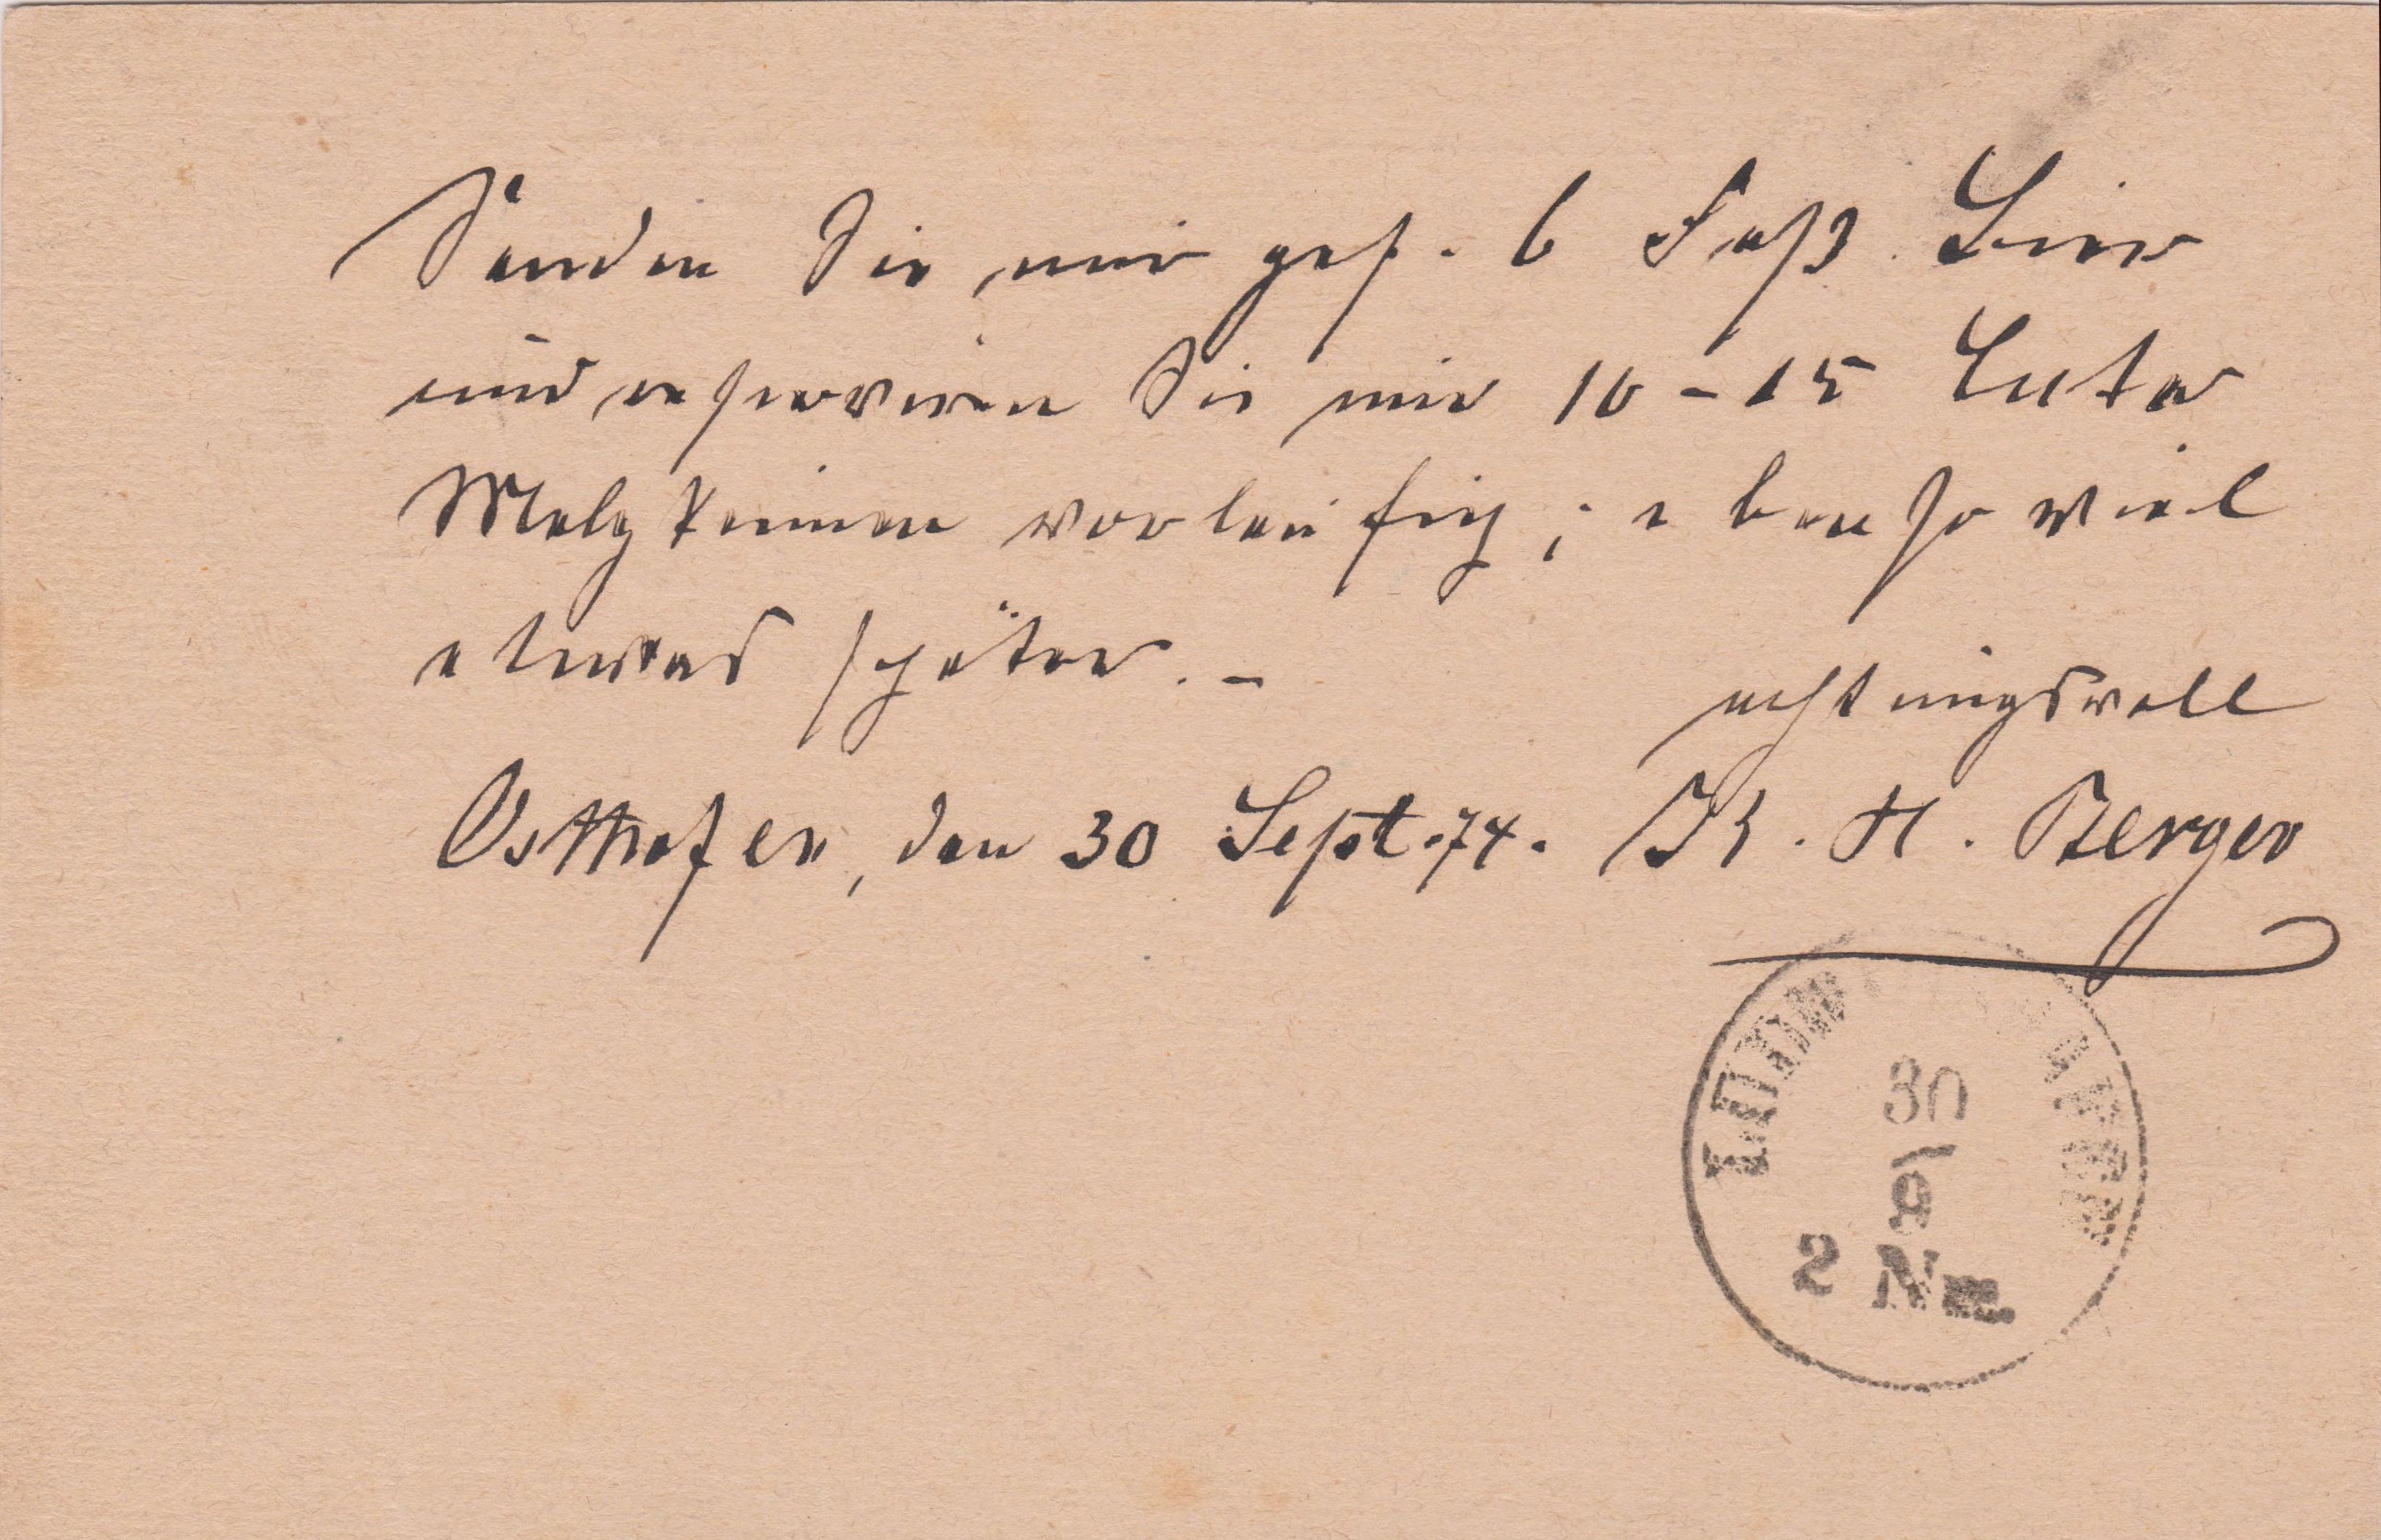 Senden Sie mir gef. 6 Faß Bier
und reserviren Sie mir 10-15 Cntr
Malzkeimen vorläufig; ebenso viel
etwas später. -
achtungsvoll
Osthofen, den 30 Sept. 74. H. Berger
30
9
2 Nm.